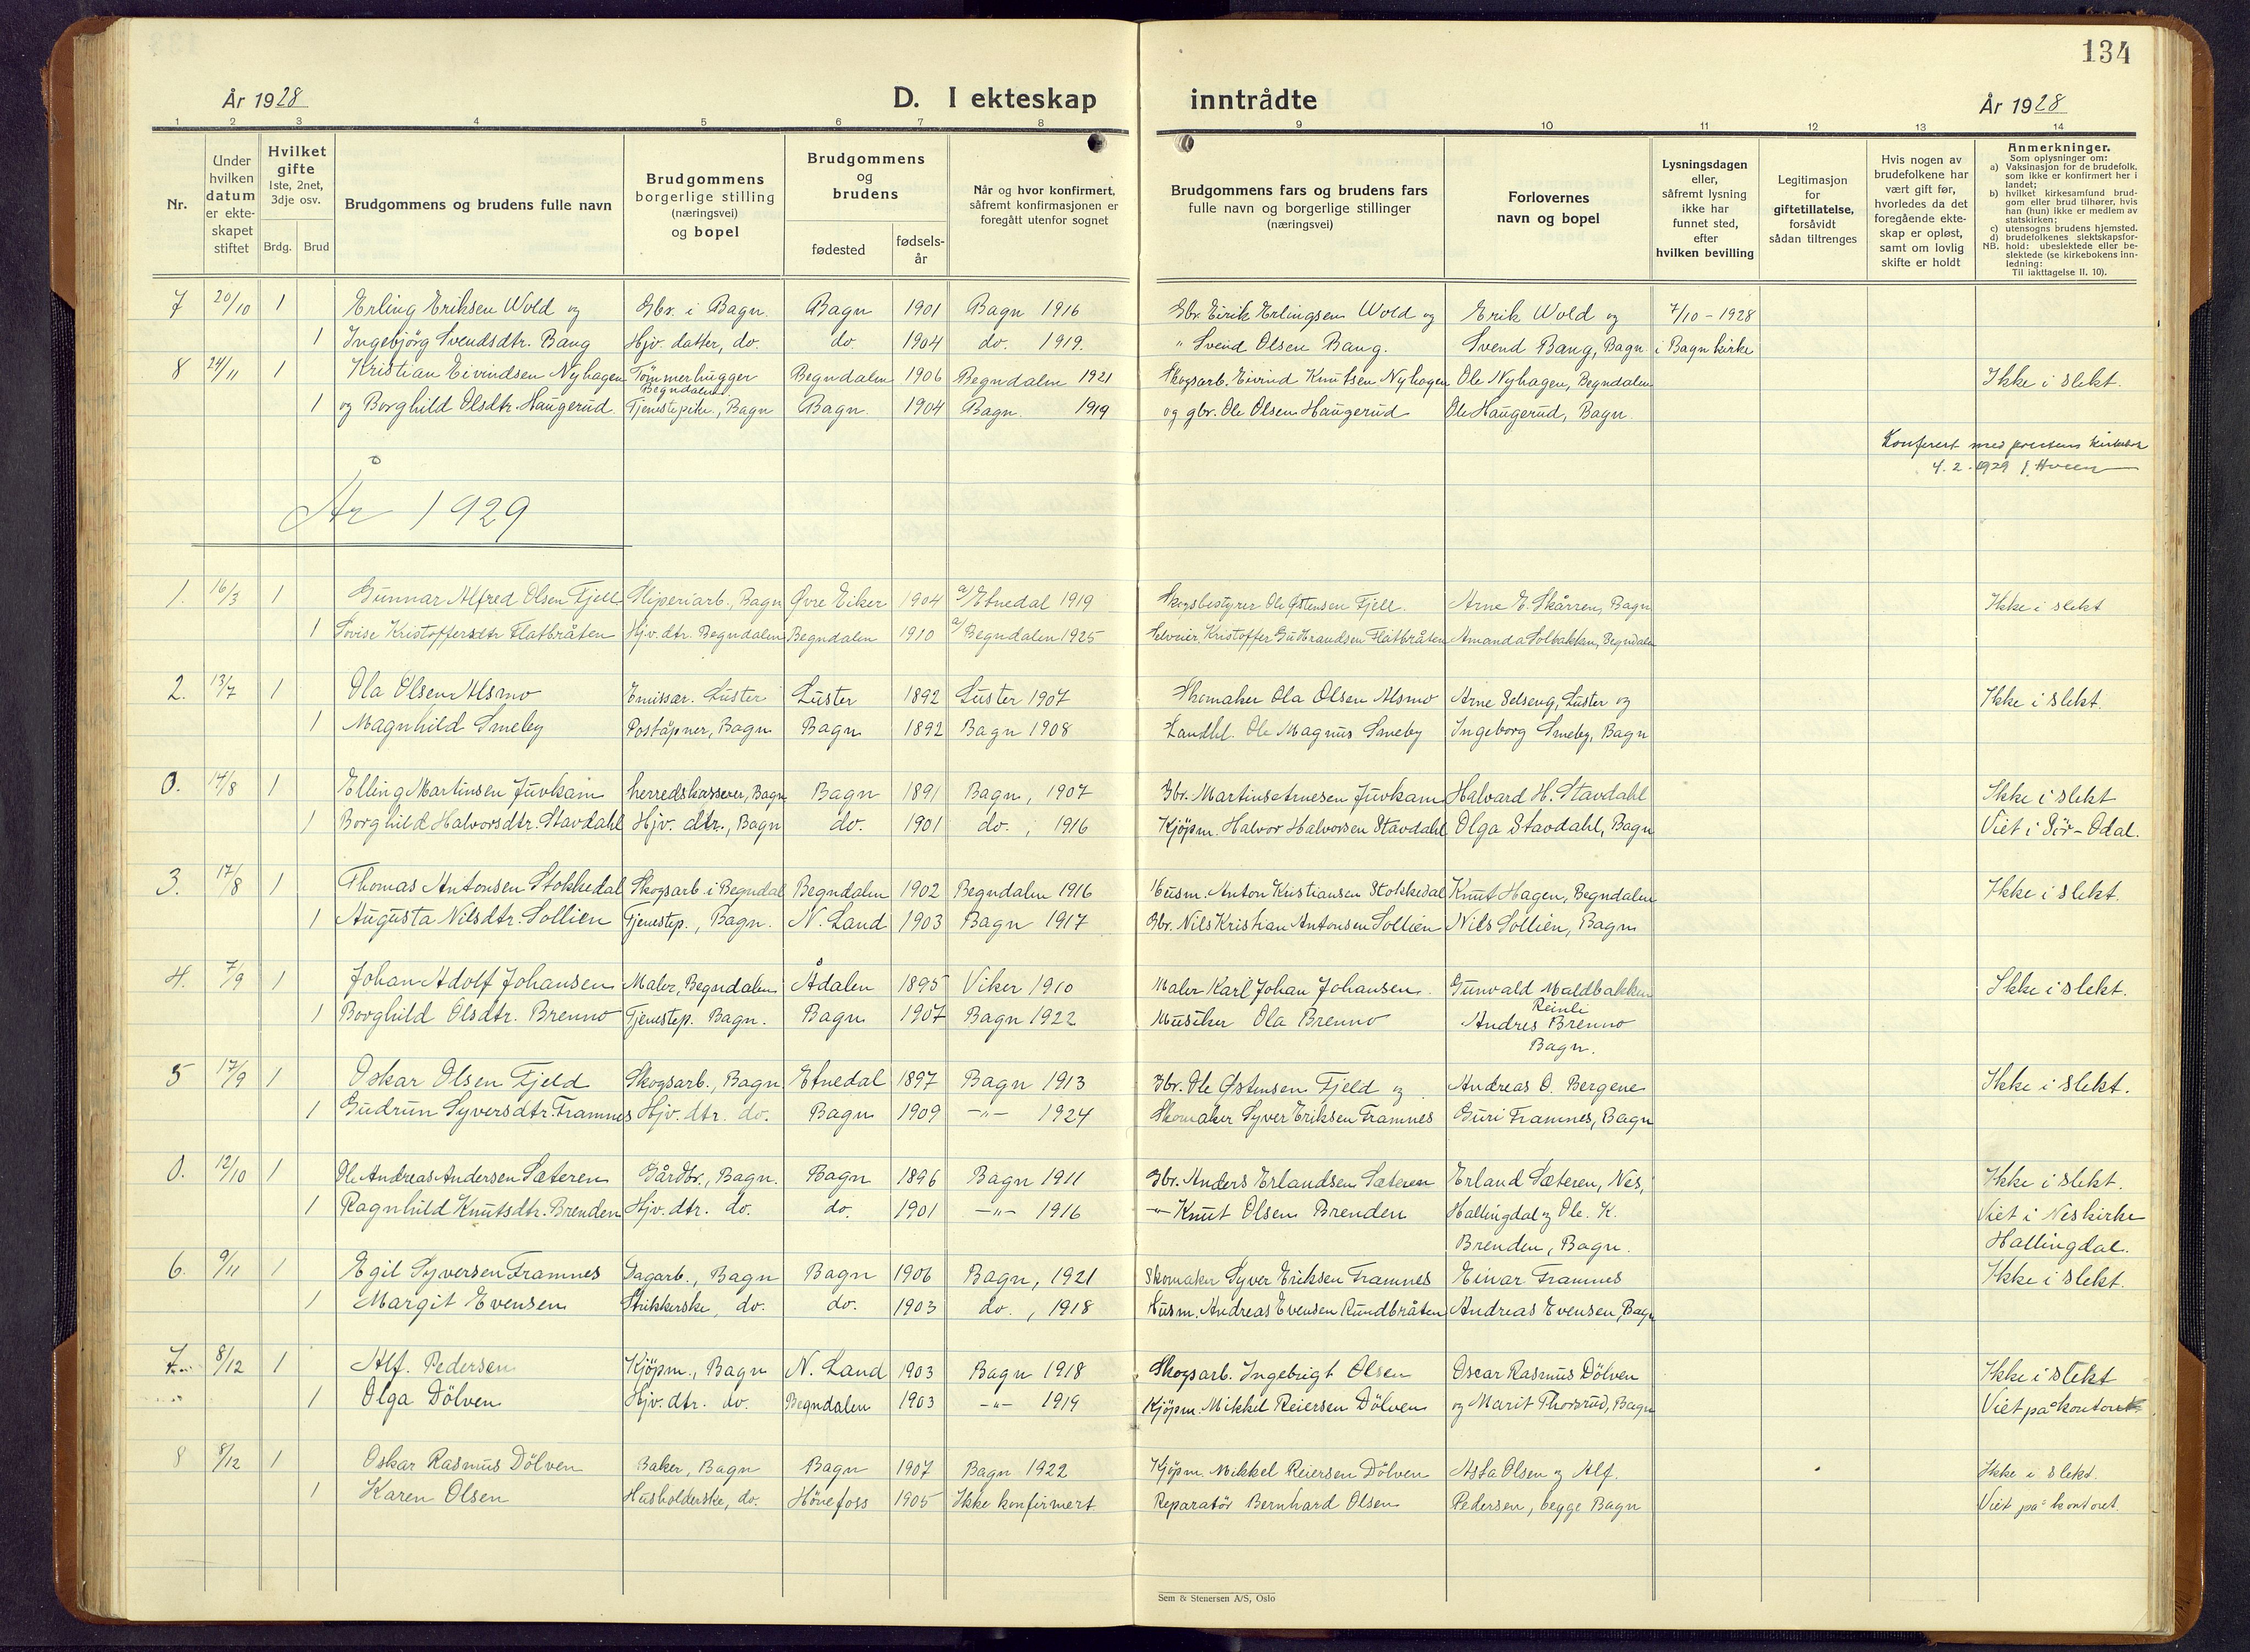 134
År 1928
D. I ekteskap inntrådte
År 1928
1 2 3 4 5 6 7 8 9 10 11 12 13 14
Nr.
Under hvilken datum er ekteskapet stiftet
Hvilket gifte 1ste, 2net, 3dje osv.
Brdg. Brud
Brudgommens og brudens fulle navn
Brudgommens borgerlige stilling (næringsvei) og bopel
Brudgommens og brudens
fødested
fødsels-år
Når og hvor konfirmert, såfremt konfirmasjonen er foregått utenfor sognet
Brudgommens fars og brudens fars fulle navn og borgerlige stillinger (næringsvei)
Forlovernes navn og bopel
Lysningsdagen eller, såfremt lysning ikke har funnet sted, efter hvilken bevilling
Legitimasjon for giftetillatelse, forsåvidt sådan tiltrenges
Hvis nogen av brudefolkene har vært gift før, hvorledes da det foregående ekteskap er opløst, samt om lovlig skifte er holdt
Anmerkninger.
Som oplysninger om:
a) Vaksinasjon for de brudefolk, som ikke er konfirmert her i landet;
b) hvilket kirkesamfund brudgom eller brud tilhører, hvis han (hun) ikke er medlem av statskirken;
c) utensogns brudens hjemsted.
d) brudefolkenes slektskapsforhold: ubeslektede eller beslektede (se kirkebokens innledning:
NB. Til iakttagelse II. 10).
7 20/10 1 Erling Eriksen Wold og Gbr. i Bagn. Bagn 1901 Bagn 1916 Gbr. Eirik Erlingsen Wold og Erik Wold og 7/10 - 1928
1 Ingebjörg Svendsdtr. Bang Hjv. datter, do. do 1904 do. 1919. " Svend Olsen Bang. Svend Bang, Bagn i Bagn kirke
8 24/11 1 Kristian Eivindsen Nyhagen Tömmerhugger Begndalen Begndalen 1906 Begndalen 1921 Skogsarb. Eivind Knutsen Nyhagen Ole Nyhagen, Begndalen Ikke i slekt.
1 og Borghild Olsdtr. Haugerud Tjenestepike., Bagn Bagn. 1904 Bagn. 1919 og gbr. Ole Olsen Haugerud Ole Haugerud, Bagn.
Konferert med prestens kirkebok
4. 2. 1929
År 1929
1. 16/3 1 Gunnar Alfred Olsen Fjell Sliperiarb., Bagn Øvre Eiker 1904 a/ Etnedal 1919 Skogsbestyrer Ole Østensen Fjell. Arne E. Skårren, Bagn Ikke i slekt
1 Lovise Kristoffersdtr Flatbråten Hjv. dtr. Begndalen Begndalen 1910 a/ Begndalen 1925 Selveier. Kristoffer Gudbrandsen Flatbråten Amanda Solbakken, Begndalen
2. 13/7 1 Ola Olsen Alsmo Emissær. Luster Luster 1892 Luster 1907 Skomaker Ola Olsen Alsmo Arne Selseng, Luster og Ikke i slekt.
1 Magnhild Smeby Poståpner, Bagn Bagn 1892 Bagn 1908 Landhl. Ole Magnus Smeby Ingeborg Smeby, Bagn
0. 14/8 1 Elling Martinsen Juvkam herredskasserer, Bagn Bagn 1891 Bagn, 1907 Gbr. Martinus Arnesen Juvkam Halvard H. Stavdahl Ikke i slekt
1 Borghild Halvorsdtr. Stavdahl Hjv. dtr., Bagn do. 1901 do., 1916 Kjöpm. Halvor Halvorsen Stavdahl Olga Stavdahl, Bagn Viet i Sör-Odal.
3. 17/8 1 Thomas Antonsen Stokkedal Skogsarb. i Begndal Begndalen 1902 Begndalen 1916 Husm. Anton Kristiansen Stokkedal Knut Hagen, Begndalen Ikke i slekt.
1 Augusta Nilsdtr. Sollien Tjenestep., Bagn. N. Land 1903 Bagn 1917 Gbr. Nils Kristian Antonsen Sollien Nils Sollien, Bagn
4. 7/9 1 Johan Adolf Johansen Maler, Begndalen Ådalen 1895 Viker 1910 Maler Karl Johan Johansen. Gunvald Moldbakken Ikke i slekt.
Reinli
1 Borghild Olsdtr. Brenno Tjenestep. Bagn. Bagn 1907 Bagn 1922 Musiker Ola Brenno Andres Brenno
Bagn.
5 17/9 1 Oskar Olsen Fjeld Skogsarb., Bagn Etnedal 1897 Bagn 1913 Gbr. Ole Østensen Fjeld og Andreas O. Bergene Ikke i slekt.
1 Gudrun Syversdtr. Framnes Hjv. dtr. do. Bagn 1909 -"- 1924 Skomaker Syver Eriksen Framnes Guri Framnes, Bagn
0. 12/10 1 Ole Andreas Andersen Sæteren Gårdbr., Bagn. Bagn 1896 Bagn 1911 Gbr. Anders Erlandsen Sæteren Erland Sæteren, Nes, Ikke i slekt.
1 Ragnhild Knutsdtr. Brenden Hjv. dtr. do. do. 1901 -"- 1916 -"- Knut Olsen Brenden Hallingdal og Ole. K. Viet i Nes kirke
Brenden, Bagn. Hallingdal.
6. 9/11 1 Egil Syversen Framnes Dagarb., Bagn Bagn 1906 Bagn, 1921 Skomaker Syver Eriksen Framnes Einar Framnes Ikke i slekt.
1 Margit Evensen Strikkerske, do. do. 1903 do., 1918 Husm. Andreas Evensen Rundbråten Andreas Evensen, Bagn
7. 8/12 1 Alf. Pedersen Kjöpm., Bagn N. Land 1903 Bagn 1918 Skogsarb. Ingebrigt Olsen Oscar Rasmus Dölven Ikke i slekt
1 Olga Dölven Hjv. dtr. do. Begndalen 1903 -"- 1919 Kjöpm. Mikkel Reiersen Dölven og Marit Thorsrud, Bagn Viet på kontoret
8 8/12 1 Oskar Rasmus Dölven Baker, Bagn Bagn 1907 Bagn 1922 Kjöpm. Mikkel Reiersen Dölven Asta Olsen og Alf. Ikke i slekt.
1 Karen Olsen Husholderske, do. Hönefoss 1905 Ikke konfirmert. Reparatör Bernhard Olsen Pedersen, begge Bagn Viet på kontoret.
Sem & Stenersen A/S, Oslo